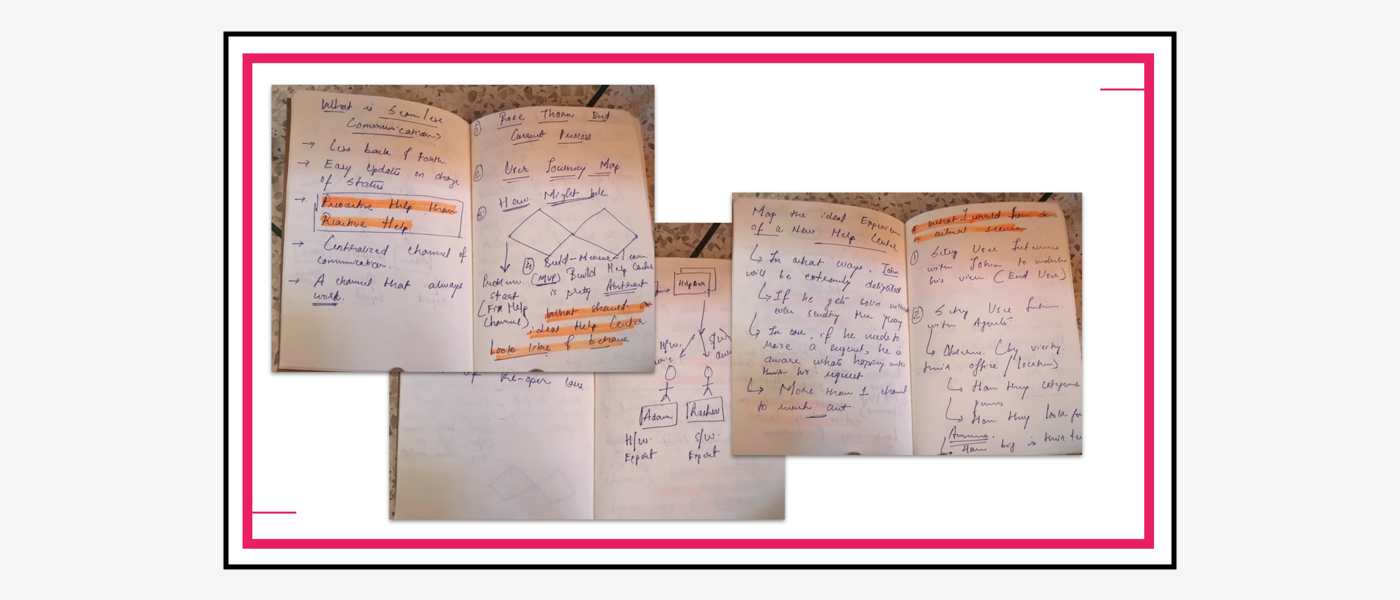 What is Seamless
Communication?
→ Less back & forth.
→ Easy updates on change
of status
→ Proactive Help than
Reactive Help
→ Centralized channel of
communication.
→ A channel that always
work.
① Rose Thorn Bud
Current Process
② User Journey Map
③ How Might We
④ Build-Measure-Learn
(MVP) Build Help Center
is pretty Abstract
Problem
start
(Fix Help
Channel)
What should an
ideal Help Center
Looks like & behave
of
HelpDesk
H/w.
S/w.
Adam
Rachel
H/w.
Expert
S/w.
Expert
Map the ideal Experience
of a New Help Center
↳ In what ways, John
will be extremely delighted
↳ If he gets soln without
even sending the query
↳ In case, if he needs to
raise a request, he is
aware whats happening with
his request
↳ More than 1 channel
to reach out.
What I would have done
actual scenario
① Setup User Interview
with John to understand
his view (End User)
② Setup User Interview
with Agents
↳ Observe (by visiting
their office / location)
↳ How they categorise
↳ How they look for
↳ How big is their team